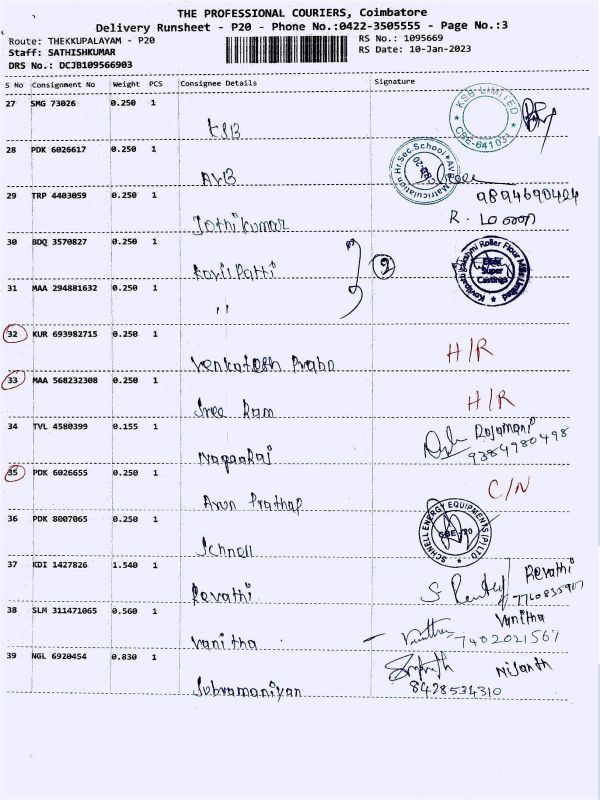 THE PROFESSIONAL COURIERS, Coimbatore
Delivery Runsheet - P20 - Phone No.:0422-3505555 - Page No.:3
Route: THEKKUPALAYAM - P20
RS No.: 1095669
Staff: SATHISHKUMAR
RS Date: 10-Jan-2023
DRS No.: DCJB109566903
S No Consignment No Weight PCS Consignee Details Signature
27 SMG 73026 0.250 1
KSB
KSB LIMITED
CBE-641031
28 PDK 6026617 0.250 1
AVB
AVB Matriculation Hr.Sec.School
29 TRP 4403059 0.250 1
Jothikumar
9894690424
R.
30 BDQ 3570827 0.250 1
Kovilpatti
2
Kovilpatti Lakshmi Roller Flour Mills Limited
Super
Castings
31 MAA 294881632 0.250 1
"
32 KUR 693982715 0.250 1
Venkatesh Prabo
H/R
33 MAA 568232308 0.250 1
Sree Ram
H/R
34 TVL 4580399 0.155 1
Nagaraj
Rajamani
9384980498
35 PDK 6026655 0.250 1
Arun Prathap
C/N
36 PDK 8007065 0.250 1
Schnell
SCHNELL ENERGY EQUIPMENTS (P) LTD
37 KDI 1427826 1.540 1
Revathi
Revathi
38 SLM 311471065 0.560 1
Vanitha
Vanitha
7402021561
39 NGL 6920454 0.830 1
Subramaniyan
Nishanth
8428534310